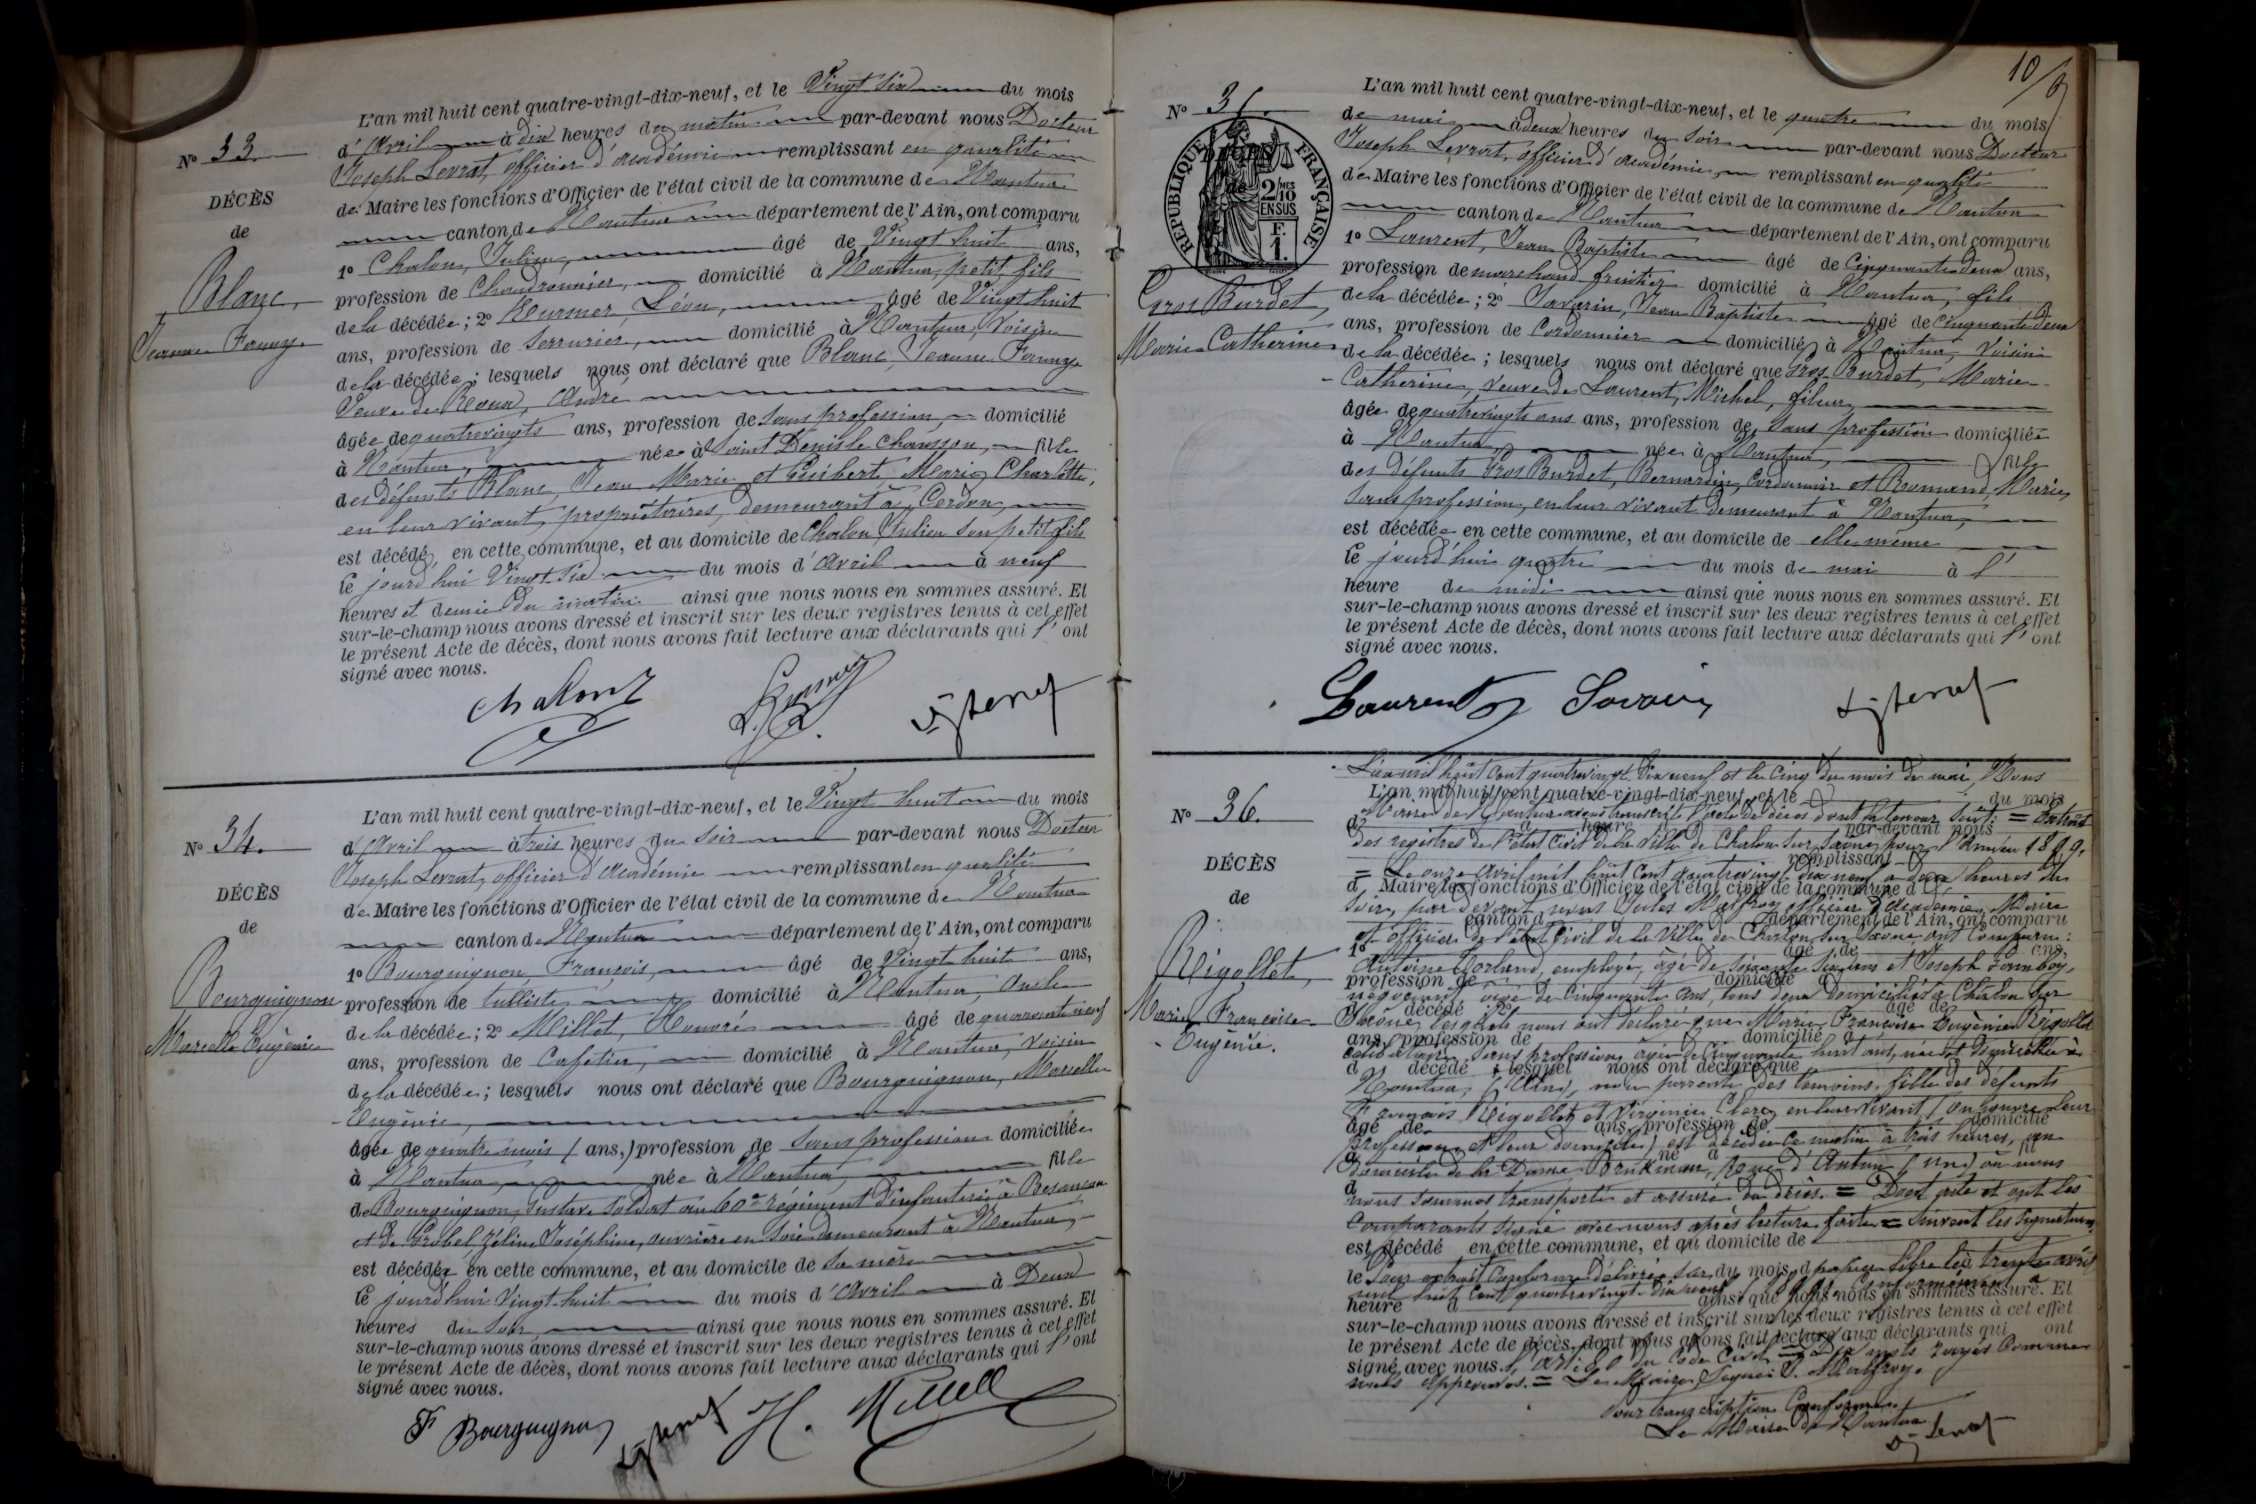 No 33.
DÉCÈS
de
Blanc,
Jeanne Fanny.
L'an mil huit cent quatre-vingt-dix-neuf, et le Vingt Six du mois
d'Avril à dix heures du matin par-devant nous Docteur
Joseph Levrat, officier d'académie remplissant en qualité
de Maire les fonctions d'Officier de l'état civil de la commune de Nantua
canton de Nantua département de l'Ain, ont comparu
1º Chalon, Julien, âgé de Vingt huit ans,
profession de Chaudronnier, domicilié à Nantua, petit fils
de la décédée; 2º Léon, âgé de Vingt huit
ans, profession de Serrurier, domicilié à Nantua, Voisin
de la décédée; lesquels nous ont déclaré que Blanc, Jeanne Fanny
Veuve de Roux, André
âgée de quatrevingts ans, profession de Sans profession, domicilié
à Nantua, née à Saint Denis le Chausson, fille
des défunts Blanc, Jean Marie et Guibert, Marie Charlotte,
en leur vivant, propriétaires, demeurant à Cerdon,
est décédé en cette commune, et au domicile de Chalon Julien son petit fils
le jourd'hui Vingt Six du mois d'Avril à neuf
heures et demie du matin ainsi que nous nous en sommes assuré. Et
sur-le-champ nous avons dressé et inscrit sur les deux registres tenus à cet effet
le présent Acte de décès, dont nous avons fait lecture aux déclarants qui l'ont
signé avec nous.
No 34.
DÉCÈS
de
Bourguignon
Marcelle Eugénie
L'an mil huit cent quatre-vingt-dix-neuf, et le Vingt huit du mois
d'Avril à trois heures du Soir par-devant nous Docteur
Joseph Levrat, officier d'académie remplissant en qualité
de Maire les fonctions d'Officier de l'état civil de la commune de Nantua
canton de Nantua département de l'Ain, ont comparu
1º Bourguignon, François, âgé de Vingt huit ans,
profession de tulliste domicilié à Nantua, oncle
de la décédée; 2º Millet, Honoré âgé de quarante neuf
ans, profession de Cafetier, domicilié à Nantua, Voisin
de la décédée; lesquels nous ont déclaré que Bourguignon, Marcelle
Eugénie,
âgée de quatre mois (ans,) profession de Sans profession domiciliée
à Nantua, née à Nantua, fille
de Bourguignon, Gustave, Soldat au 60e régiment d'infanterie à Besançon
et de Grobel, Zéline Joséphine, ouvrière en Soie demeurant à Nantua,
est décédée en cette commune, et au domicile de Sa mère
le jourd'hui Vingt-huit du mois d'Avril à Deux
heures du Soir ainsi que nous nous en sommes assuré. Et
sur-le-champ nous avons dressé et inscrit sur les deux registres tenus à cet effet
le présent Acte de décès, dont nous avons fait lecture aux déclarants qui l'ont
signé avec nous.
F Bourguignon H. Millet
10
No 35.
RÉPUBLIQUE FRANÇAISE
2/10 EN SUS
F. 1.
Gros Burdet,
Marie Catherine
L'an mil huit cent quatre-vingt-dix-neuf, et le quatre du mois
de mai à deux heures du Soir par-devant nous Docteur
Joseph Levrat, officier d'académie, remplissant en qualité
de Maire les fonctions d'Officier de l'état civil de la commune de Nantua
canton de Nantua département de l'Ain, ont comparu
1º Laurent, Jean Baptiste âgé de Cinquante deux ans,
profession de marchand fruitier domicilié à Nantua, fils
de la décédée; 2º Savarin, Jean Baptiste âgé de Cinquante Deux
ans, profession de Cordonnier domicilié à Nantua, Voisin
de la décédée; lesquels nous ont déclaré que Gros Burdet, Marie
Catherine, Veuve de Laurent, Michel, fileur,
âgée de quatrevingts ans ans, profession de Sans profession domiciliée
à Nantua, née à Nantua, fille
des défunts Gros Burdet, Bernardin, Cordonnier et Romand, Marie,
Sans profession, en leur vivant demeurant à Nantua,
est décédée en cette commune, et au domicile de elle même
le jourd'hui quatre du mois de mai à l'
heure de midi ainsi que nous nous en sommes assuré. Et
sur-le-champ nous avons dressé et inscrit sur les deux registres tenus à cet effet
le présent Acte de décès, dont nous avons fait lecture aux déclarants qui l'ont
signé avec nous.
Laurent Savarin
No 36.
DÉCÈS
de
Rigollet,
Marie Françoise
Eugénie.
L'an mil huit cent quatrevingt dix neuf et le Cinq du mois de mai, Nous
Maire de Nantua avons transcrit l'acte de décès dont la teneur Suit: = Extrait
des registres de l'état Civil de la Ville de Chalon Sur Saône pour l'Année 1899.
= Le onze Avril mil huit Cent quatrevingt dix neuf à deux heures du
Soir, par devant nous Jules officier d'Académie, Maire
et officier de l'état Civil de la Ville de Chalon Sur Saône ont Comparu:
Antoine employé, âgé de et Joseph
négociant âgé de Cinquante ans, tous deux domiciliés à Chalon Sur
Saône, lesquels nous ont déclaré que Marie Françoise Eugénie Rigollet
célibataire, Sans profession, âgée de Cinquante huit ans, née et domiciliée à
Nantua, (Ain), non parente des témoins, fille des défunts
François Rigollet et Virginie Clerc, en leur vivant (on ignore leur
profession et leur domicile) est décédée ce matin à trois heures, au
domicile de la Dame rue d'Autun (un) où nous
nous sommes transporté et assuré du décès. = Dont acte et ont les
Comparants Signé avec nous après lecture faite = Suivent les Signatures.
Pour extrait Conforme Délivré Sur papier libre le trente avril
mil huit Cent quatrevingt-dix neuf Conformément à
l'art. 80 du Code Civil = mots rayés Comme
nuls approuvés. = Le Maire, Signé J.
Pour transcription Conforme.
Le Maire de Nantua